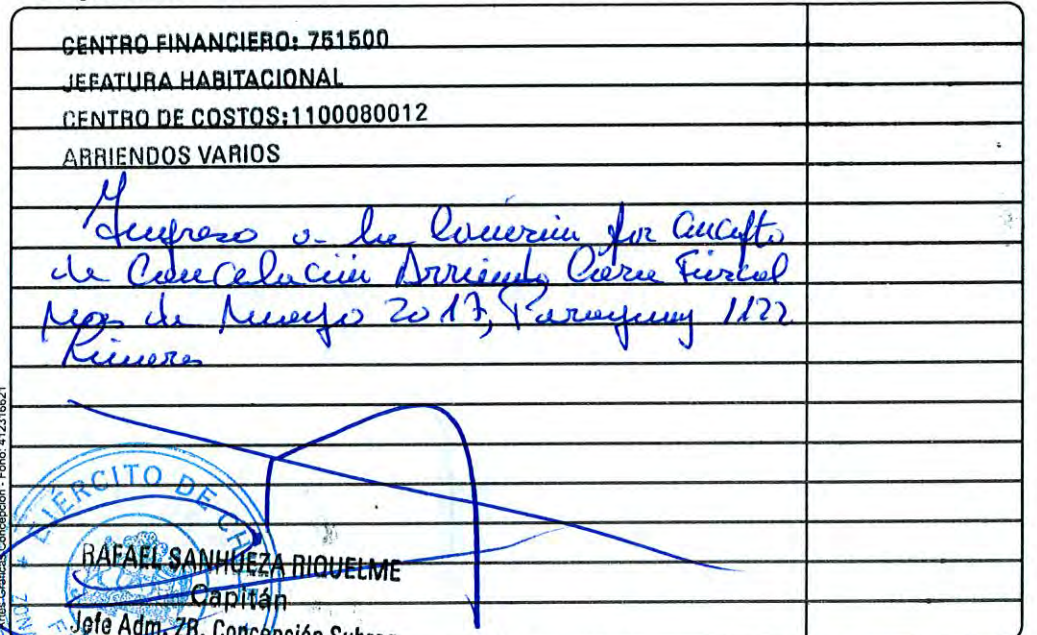 CENTRO FINANCIERO: 751500
JEFATURA HABITACIONAL
CENTRO DE COSTOS:1100080012
ARRIENDOS VARIOS
Ingreso a la por concepto
de Cancelación Arriendo Casa Fiscal
Mes de Mayo 2017, Paraguay 1122
Linares
EJÉRCITO DE CH
RAFAEL SANHUEZA RIQUELME
Capitán
Jefe Adm. ZB. Concepción Subrog
Artes Gráficas Concepción - Fono: 412316621